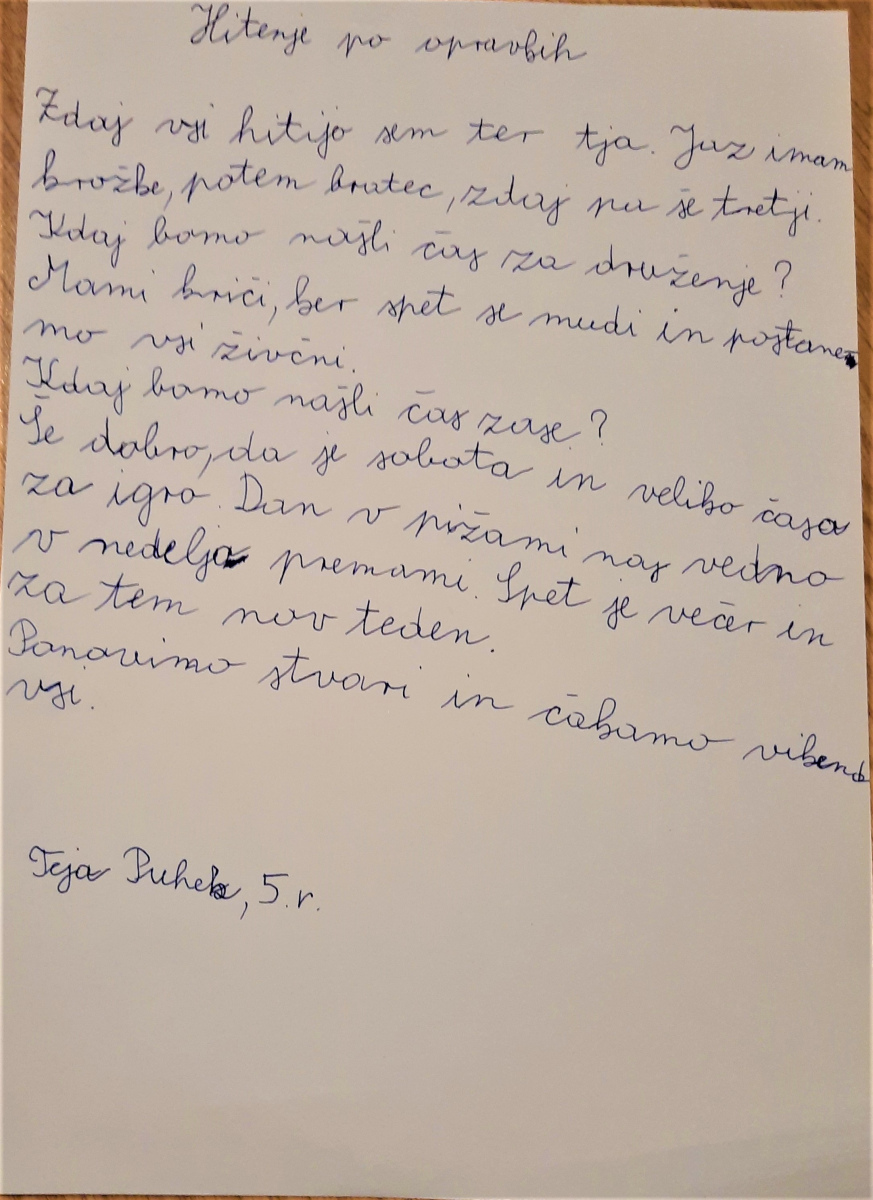 Hitenje po opravkih
Zdaj vsi hitijo sem ter tja. Jaz imam
krožke, potem bratec, zdaj pa še tretji.
Kdaj bomo našli čas za druženje?
Mami kriči, ker spet se mudi in postane-
mo vsi živčni.
Kdaj bomo našli čas zase?
Še dobro, da je sobota in veliko časa
za igro. Dan v pižami nas vedno
v nedeljo premami. Spet je večer in
za tem nov teden.
Ponovimo stvari in čakamo vikend
vsi.
Teja Puhek, 5. r.